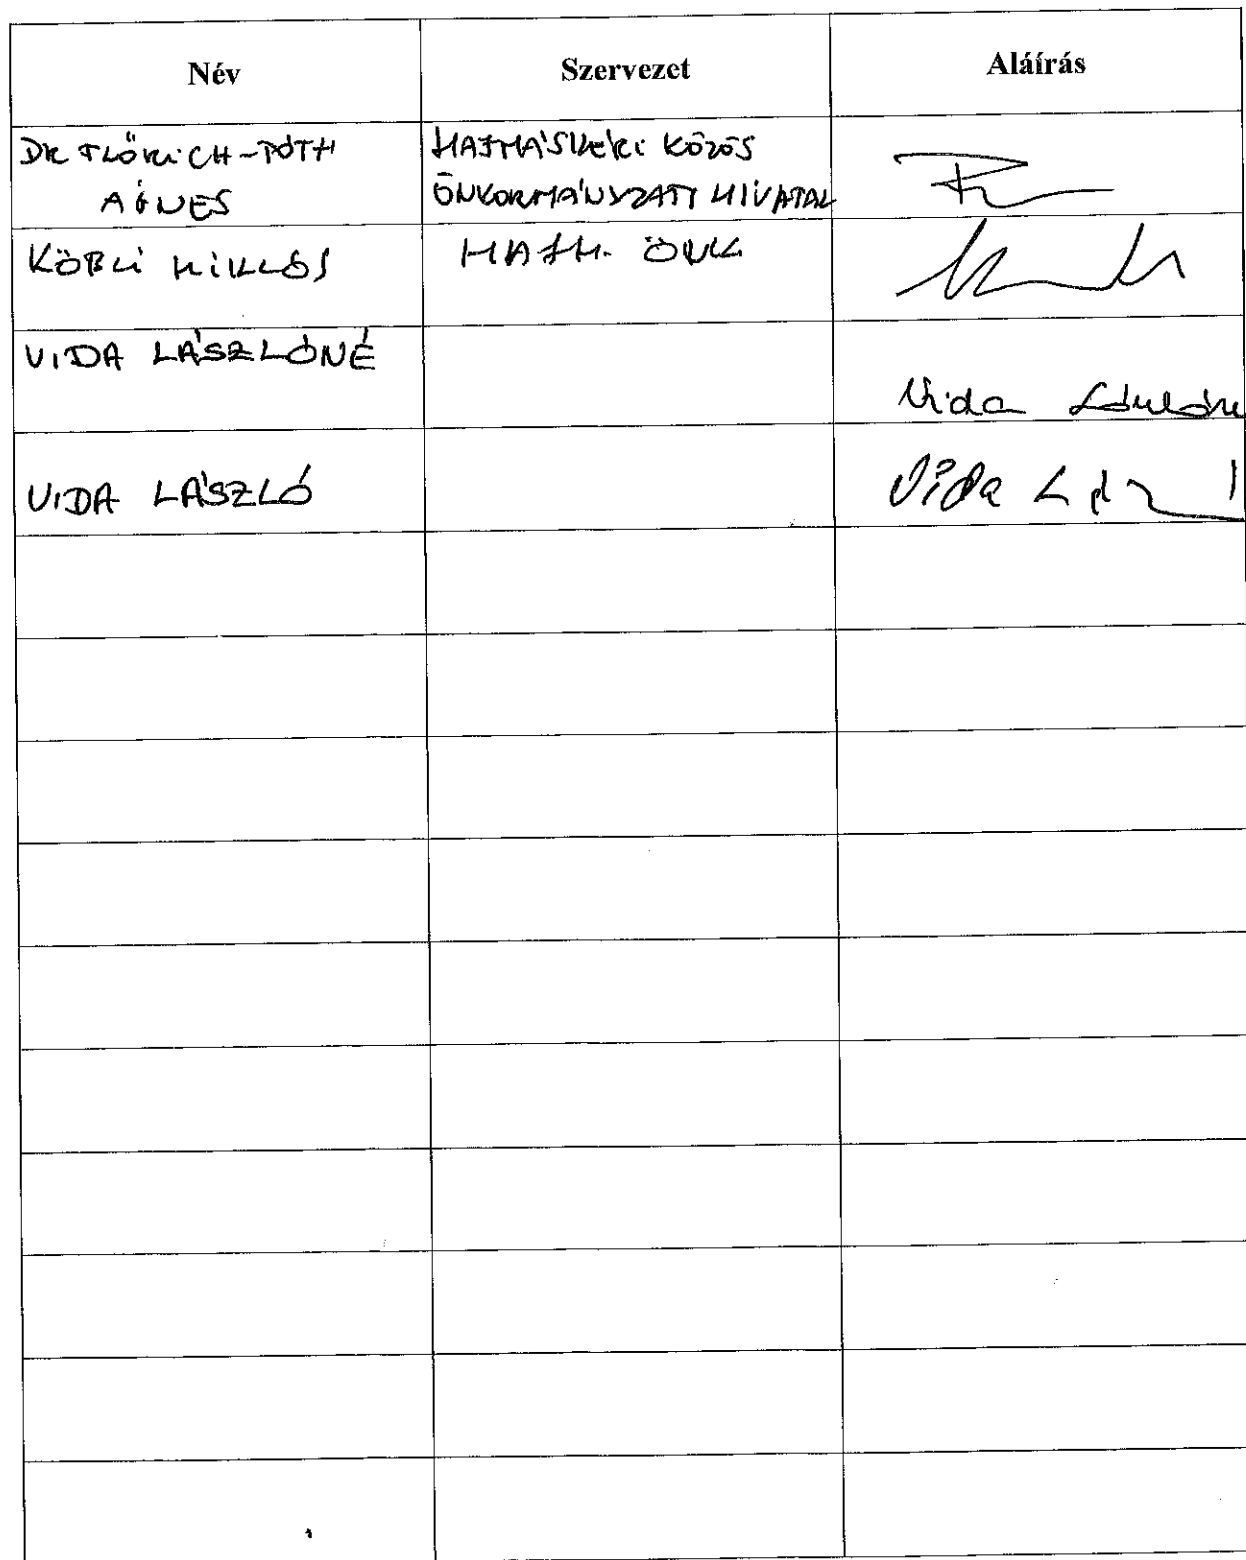 Név Szervezet Aláírás
DR FLŐRICH-TÓTH HAJMÁSKÉRI KÖZÖS
ÁGNES ÖNKORMÁNYZATI HIVATAL
KÖBLI MIKLÓS HAJM. ÖNK
VIDA LÁSZLÓNÉ
Vida Lászlóné
VIDA LÁSZLÓ Vida László